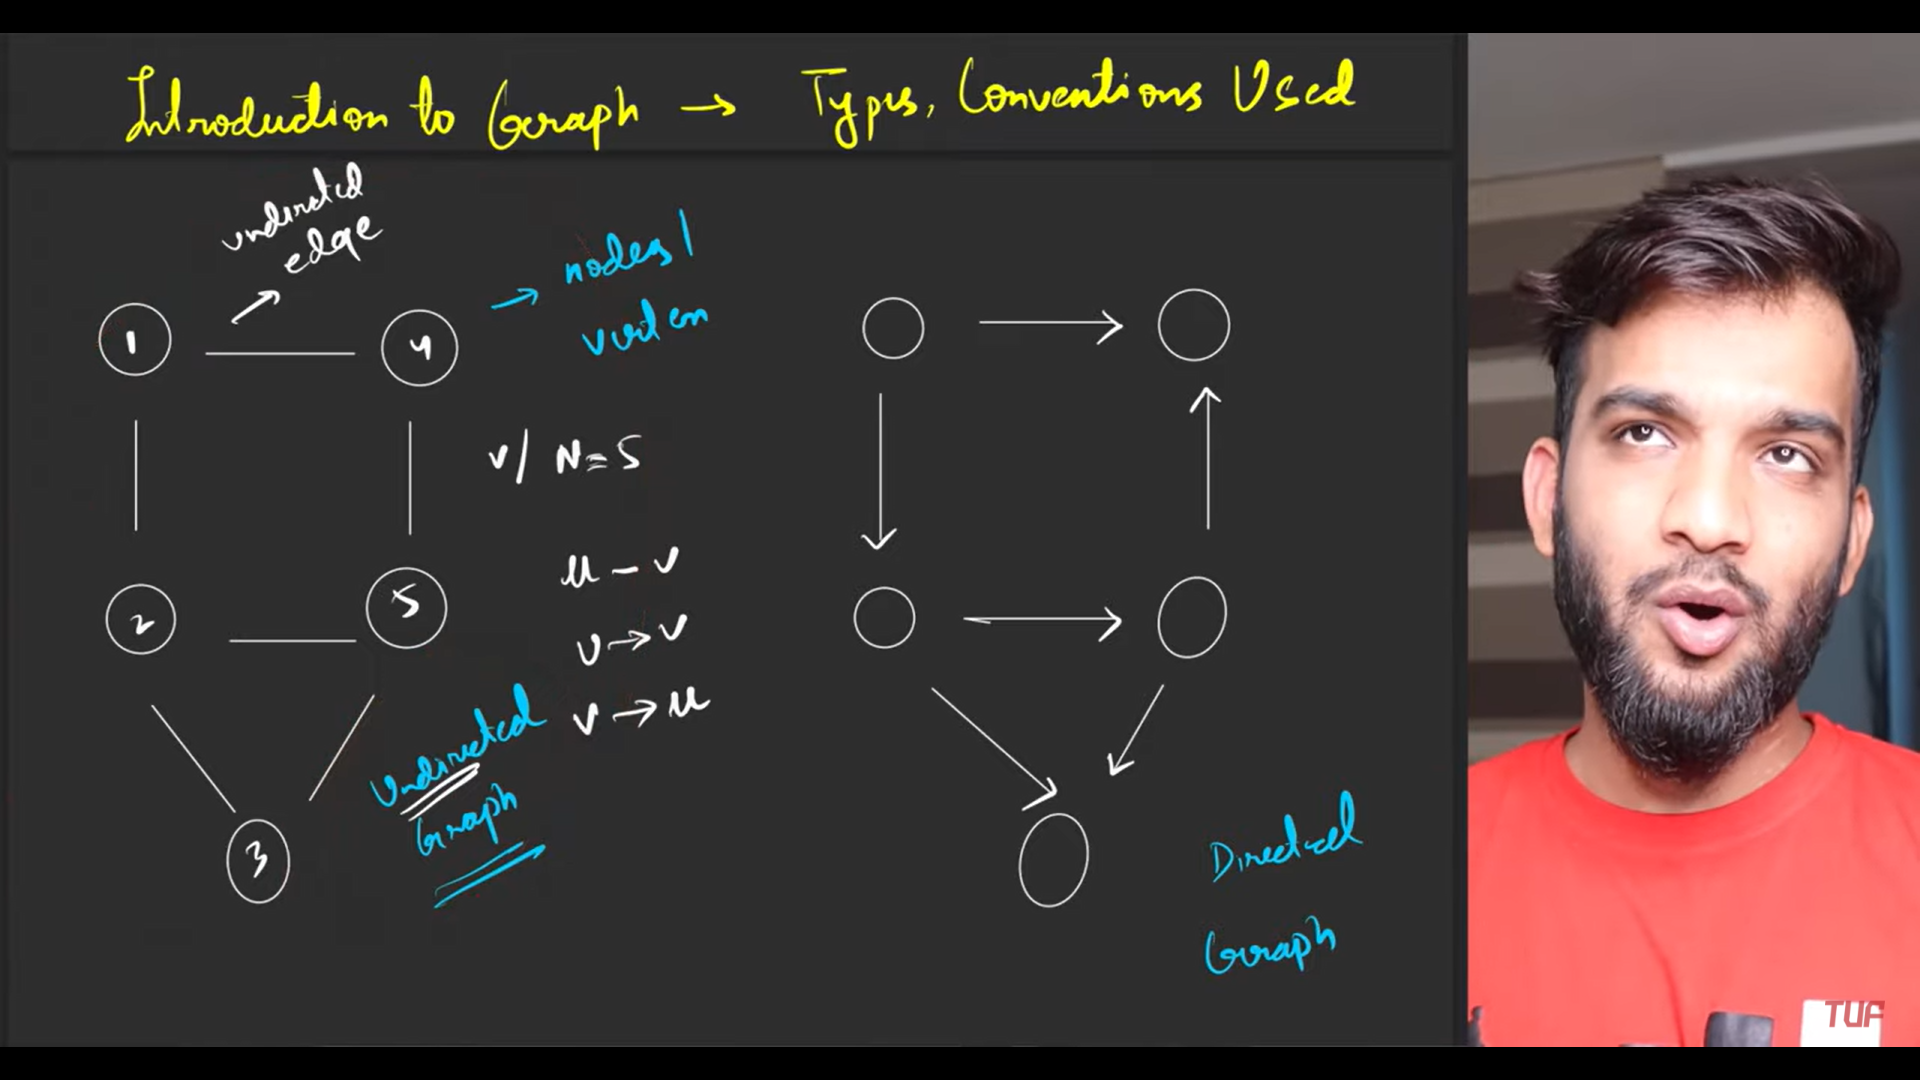 Introduction to Graph → Types, Conventions Used
undirected
edge
→ nodes /
vertex
1
4
v / N = 5
2
5
u - v
u → v
v → u
3
Undirected
Graph
Directed
Graph
TUF